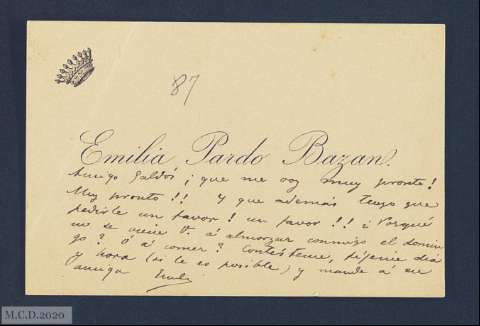 87
Emilia Pardo Bazan.
Amigo Galdós ¡que me voy muy pronto!
Muy pronto!! Y que además tengo que
pedirle un favor! un favor!! ¿Porqué
no se viene V. á almorzar conmigo el domin
go? Ó á comer? Contésteme, fíjeme dia
y hora (si le es posible) y mande á su
amiga Emilia
M.C.D.2020